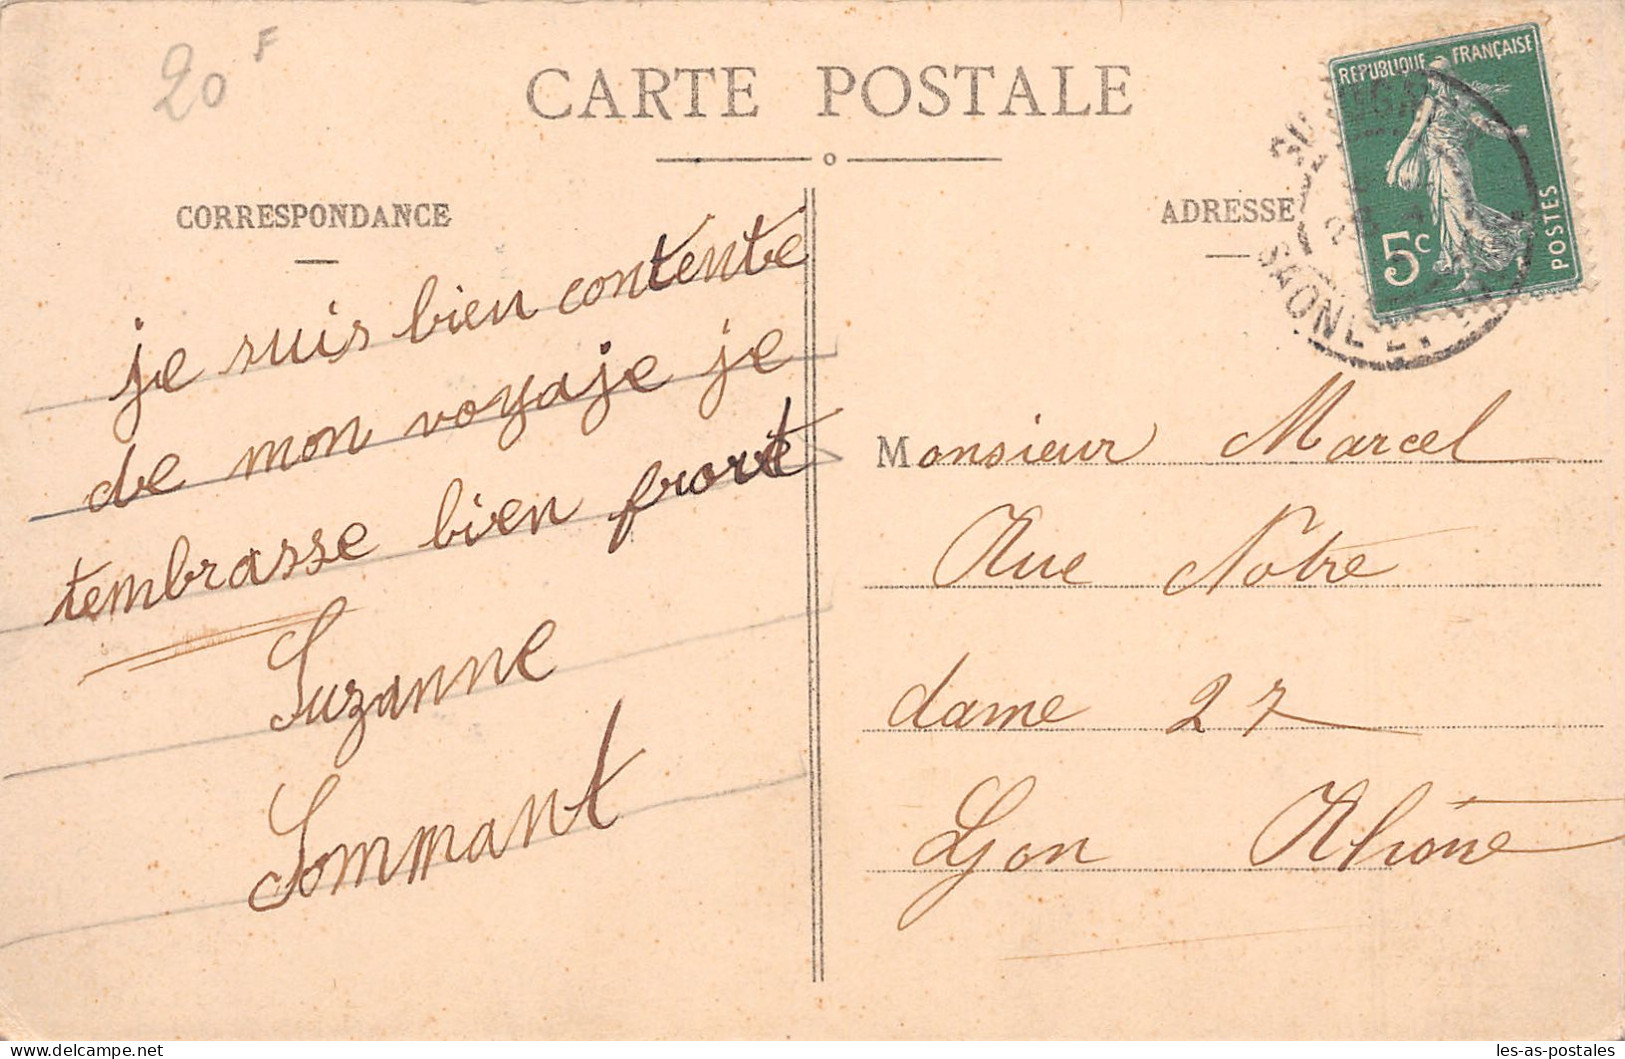 20 F
CARTE POSTALE
CORRESPONDANCE
je suis bien contente
de mon voyaje je
tembrasse bien frort
Suzanne
Sommant
ADRESSE
REPUBLIQUE FRANÇAISE
5c
POSTES
SAONE ET
Monsieur Marcel
Rue Notre
dame 27
Lyon Rhône
les-as-postales